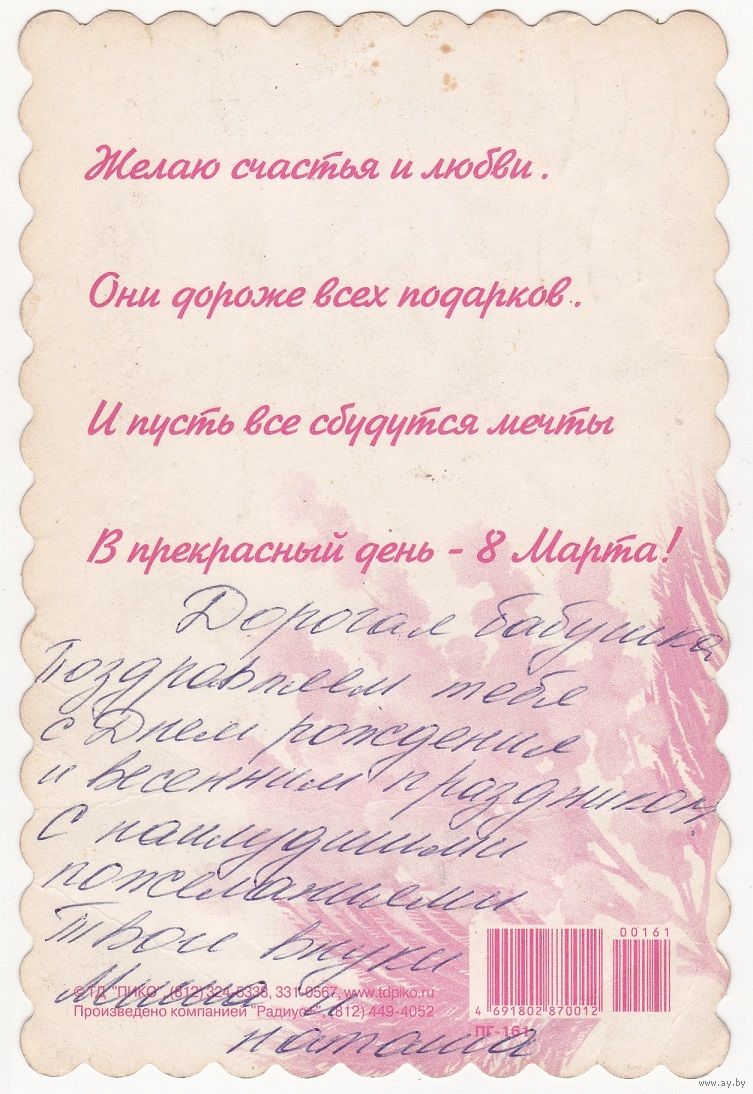 Желаю счастья и любви.
Они дороже всех подарков.
И пусть все сбудутся мечты
В прекрасный день - 8 Марта!
Дорогая бабушка
Поздравляем тебя
с Днем рождения
и весенним праздником
С наилучшими
пожеланиями
Твои внуки
Миша и
Наташа
00161
© ТД "ПИКО" (812) 324-8338, 331-0567, www.tdpiko.ru
Произведено компанией "Радиус" (812) 449-4052
4 691802 870012
ПГ-161
www.ay.by